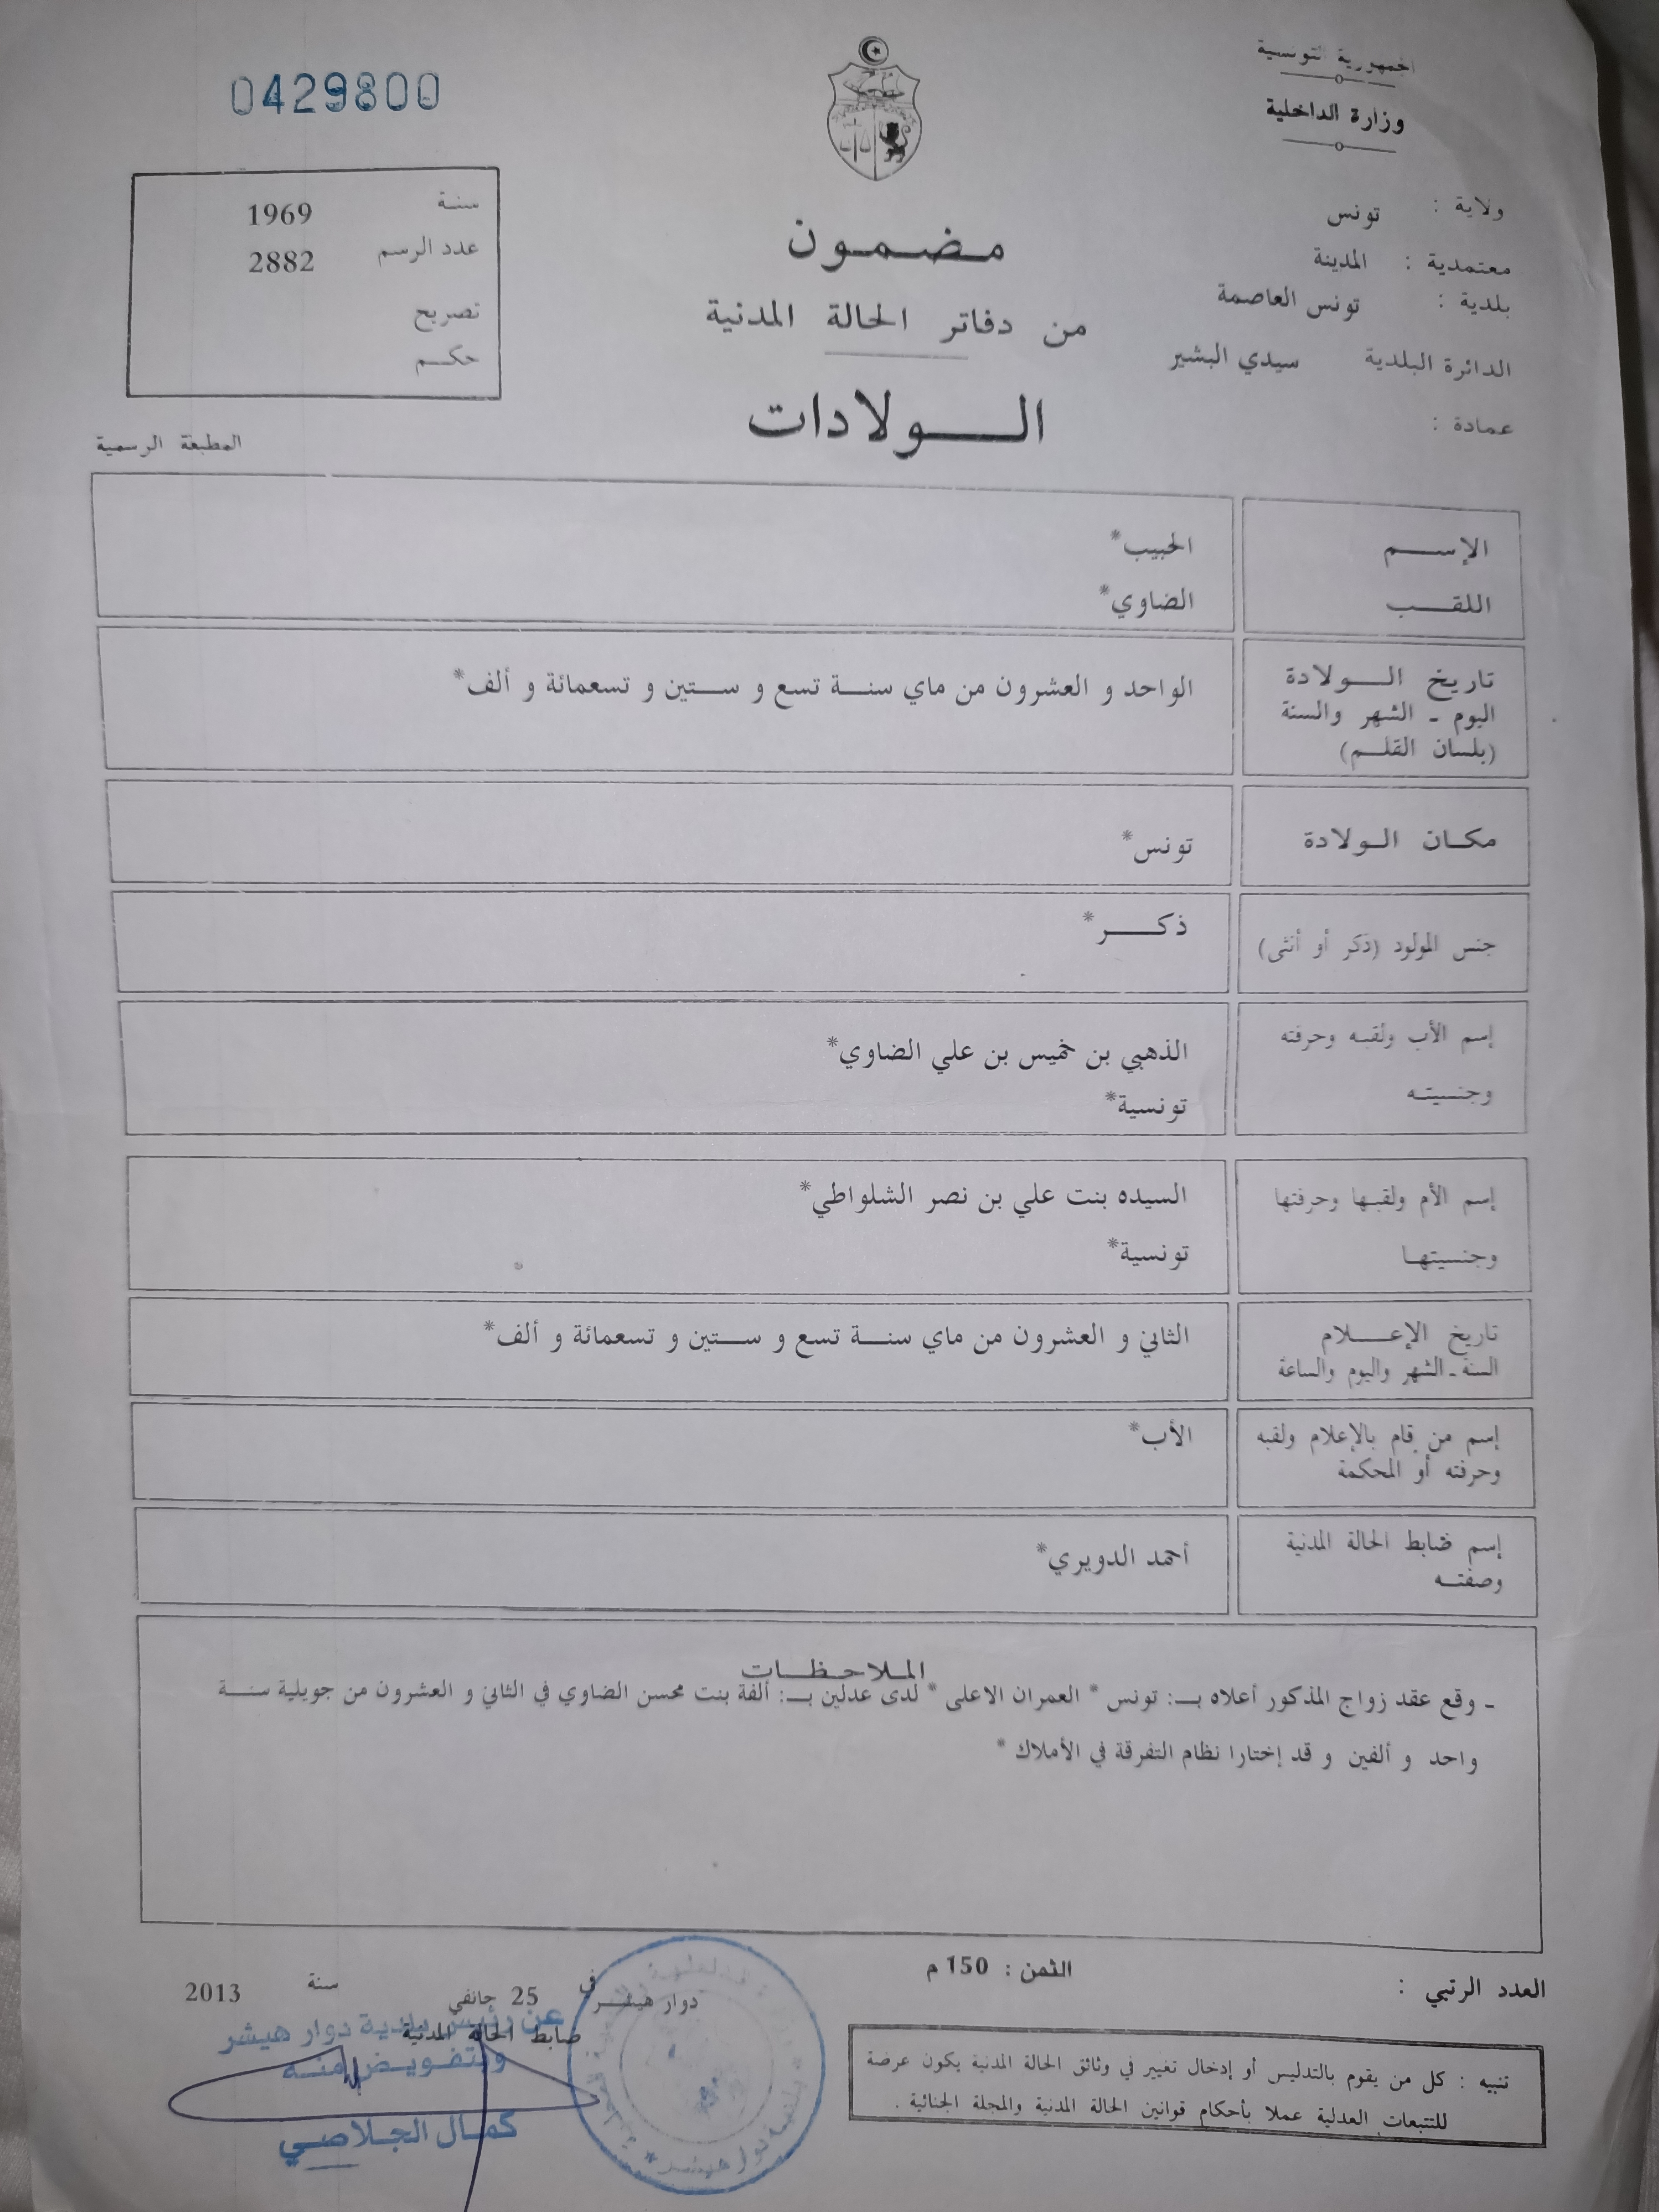 الجمهورية التونسية
وزارة الداخلية
ولاية : تونس
معتمدية : المدينة
بلدية : تونس العاصمة
الدائرة البلدية سيدي البشير
عمادة :
مضمون
من دفاتر الحالة المدنية
الولادات
0429800
سنة 1969
عدد الرسم 2882
تصريح
حكم
المطبعة الرسمية
الإسم الحبيب*
اللقب الضاوي*
تاريخ الولادة
اليوم - الشهر والسنة
(بلسان القلم)
الواحد و العشرون من ماي سنة تسع و ستين و تسعمائة و ألف*
مكان الولادة تونس*
جنس المولود (ذكر أو أنثى) ذكر*
إسم الأب ولقبه وحرفته
وجنسيته
الذهبي بن خميس بن علي الضاوي*
تونسية*
إسم الأم ولقبها وحرفتها
وجنسيتها
السيده بنت علي بن نصر الشلواطي*
تونسية*
تاريخ الإعلام
السنة - الشهر واليوم والساعة
الثاني و العشرون من ماي سنة تسع و ستين و تسعمائة و ألف*
إسم من قام بالإعلام ولقبه
وحرفته أو المحكمة
الأب*
إسم ضابط الحالة المدنية
وصفته
أحمد الدويري*
الملاحظات
- وقع عقد زواج المذكور أعلاه بـ: تونس * العمران الاعلى * لدى عدلين بـ: ألفة بنت محسن الضاوي في الثاني و العشرون من جويلية سنة
واحد و ألفين و قد إختارا نظام التفرقة في الأملاك *
العدد الرتبي :
الثمن : 150 م
تنبيه : كل من يقوم بالتدليس أو إدخال تغيير في وثائق الحالة المدنية يكون عرضة
للتتبعات العدلية عملا بأحكام قوانين الحالة المدنية والمجلة الجنائية .
دوار هيشر في 25 جانفي سنة 2013
ضابط الحالة المدنية
عن رئيس بلدية دوار هيشر
وبتفويض منه
كمال الجلاصي
بلدية دوار هيشر